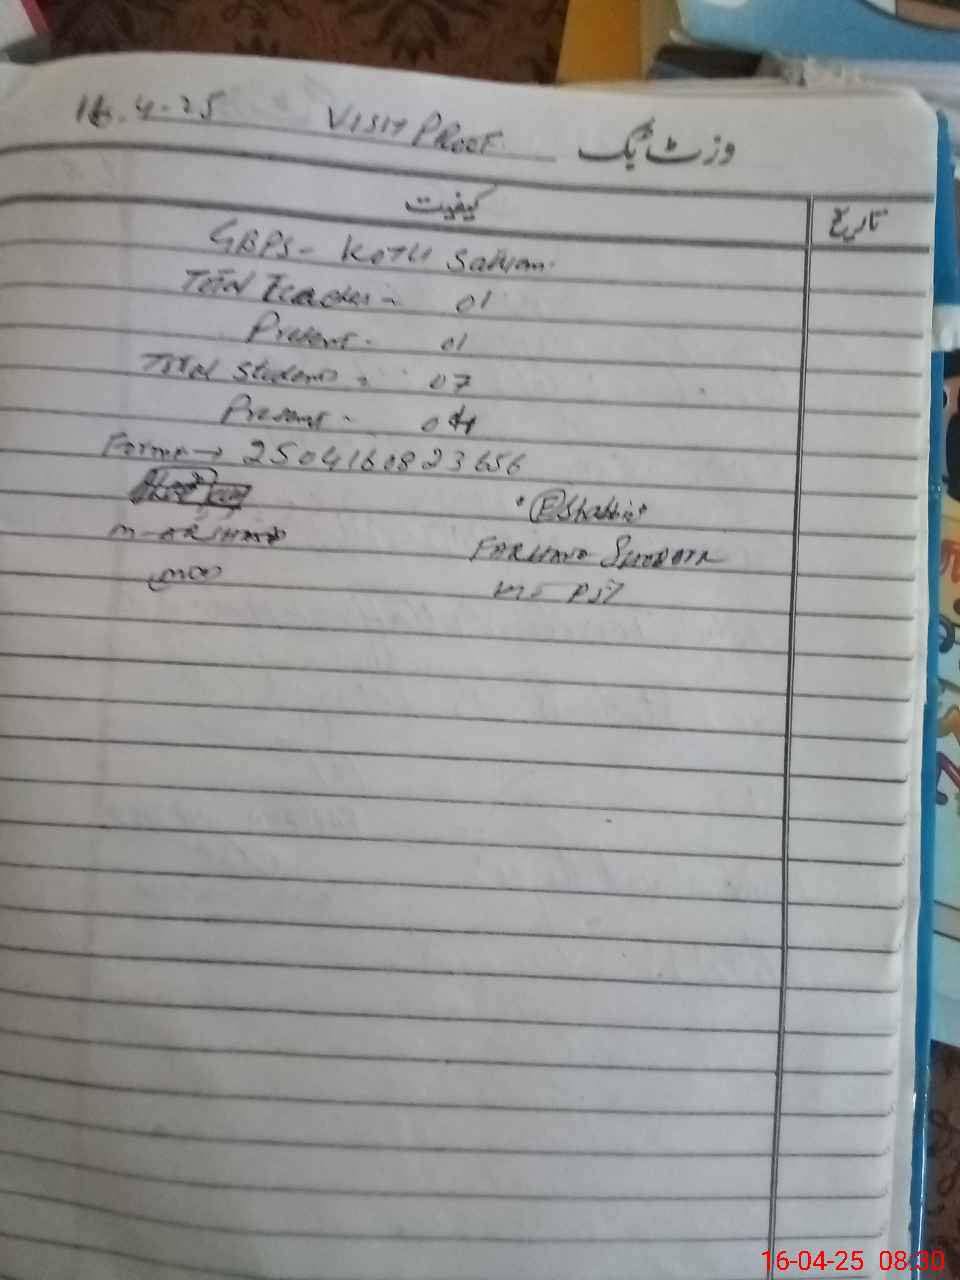 16.4-25 VISIT PROOF وزٹ بک
کیفیت تاریخ
GBPS - KOTLI Satyan
Total Teacher - 01
Present - 01
Total Students - 07
Present - 04
Form # → 2504160823656
M-ARSHAD
FARHANA
PST
16-04-25 08:30